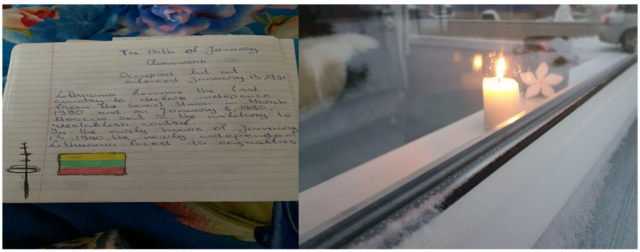 The 13th of January
Classwork
Occupied but not
silenced January 13, 1991
Lithuania became the first
country to declare indepence
from the Soviet Union in March
1990 and on January 8, 1990,
Moscow sent in the military to
reestablish control
In the early hours of January
13, 1990 the newly independent
Lithuania faced its